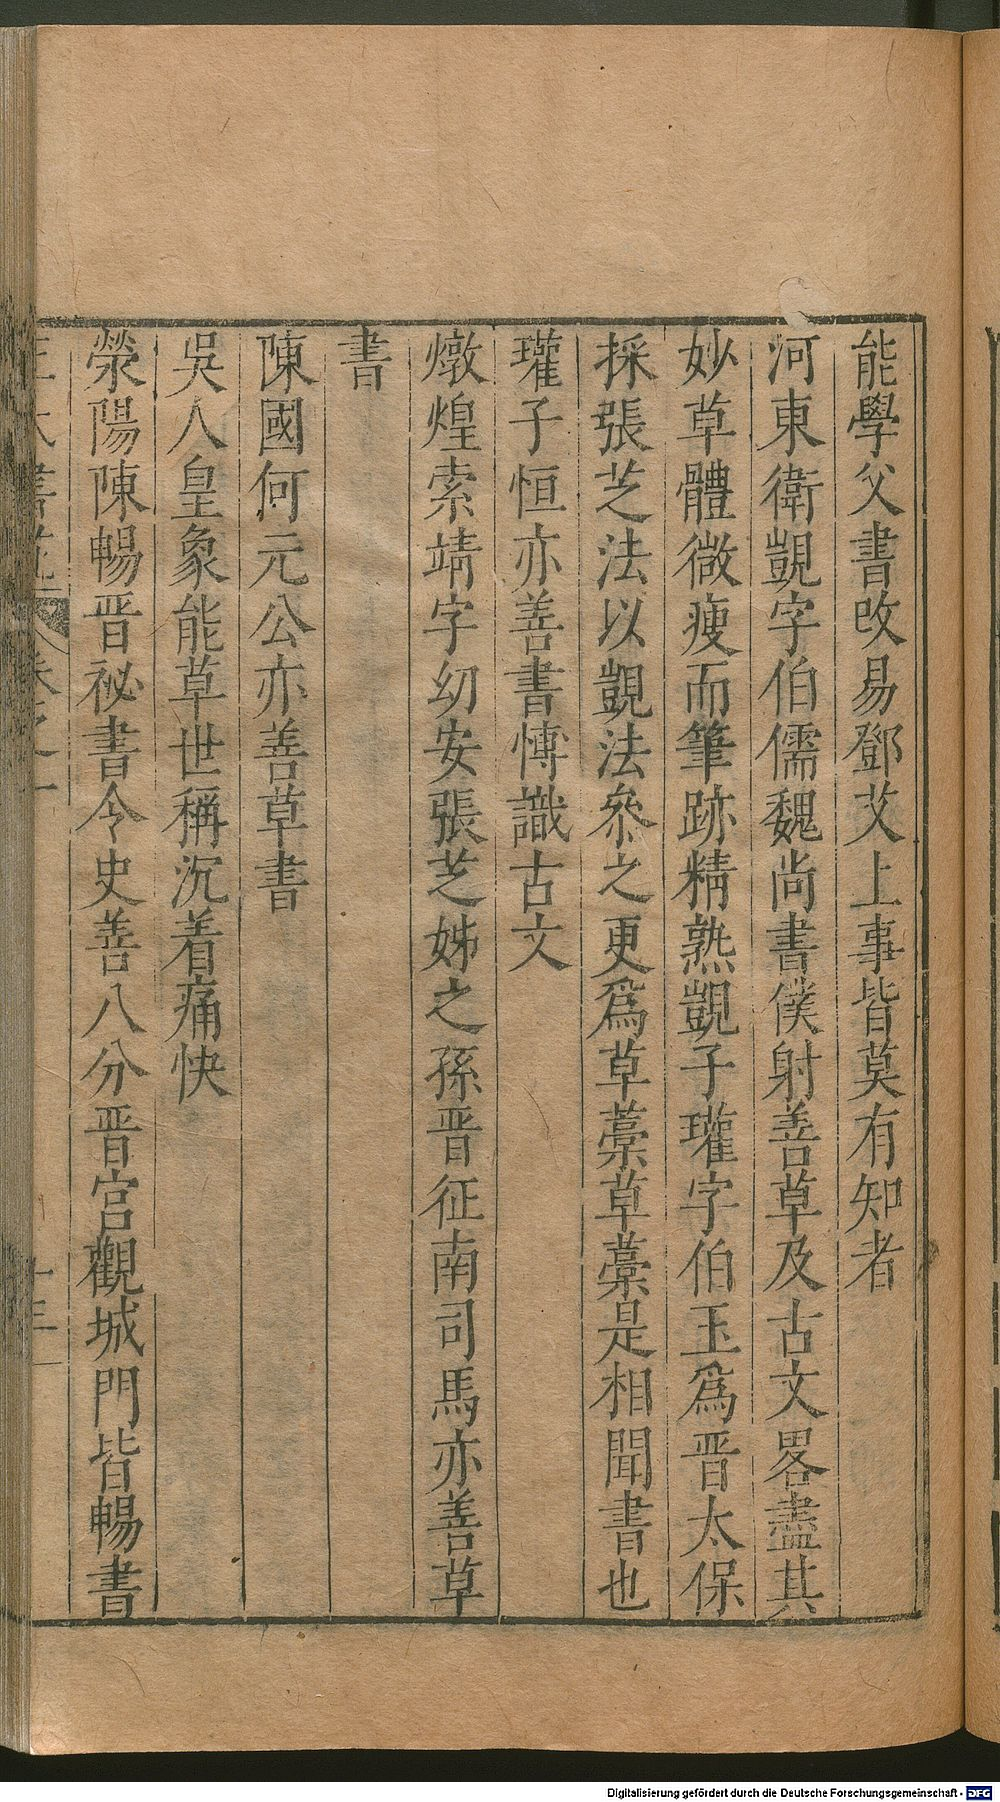 能學父書改易鄧艾上事皆莫有知者
河東衛覬字伯儒魏尚書僕射善草及古文畧盡其
妙草體微瘦而筆跡精熟覬子瓘字伯玉爲晋太保
採張芝法以覬法叅之更爲草藁草藁是相聞書也
瓘子恒亦善書愽識古文
燉煌索靖字幼安張芝姊之孫晋征南司馬亦善草
書
陳國何元公亦善草書
吳人皇象能草世稱沉着痛快
滎陽陳暢晋祕書令史善八分晋宫觀城門皆暢書
卷之一
Digitalisierung gefördert durch die Deutsche Forschungsgemeinschaft - DFG